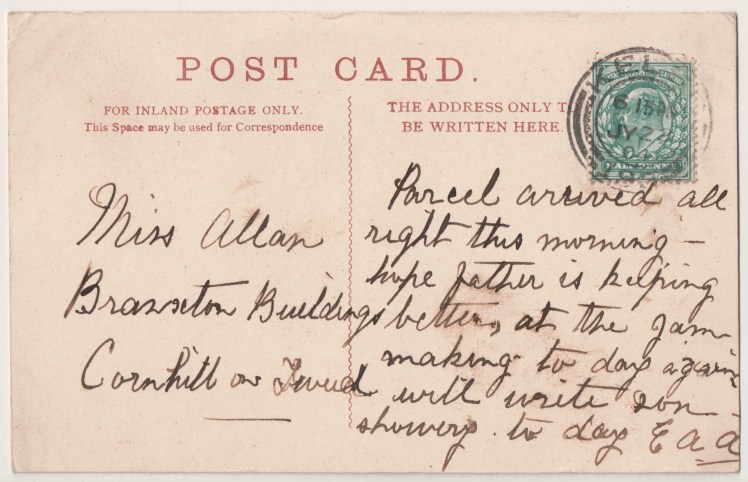 POST CARD.
FOR INLAND POSTAGE ONLY.
This Space may be used for Correspondence
THE ADDRESS ONLY T
BE WRITTEN HERE.
KEL
6 15 PM
JY 27
04
HALFPENNY
Miss Allan
Branxton Buildings
Cornhill on Tweed
Parcel arrived all
right this morning –
hope father is keeping
better, at the jam
making to day again
will write son –
showery to day E a a